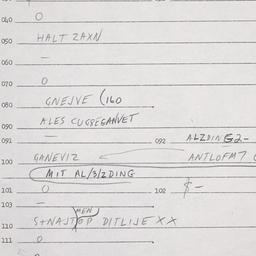 040
O
050 HALT ZAXN
060 —
070 O
080 GNEJVE (160
090 ALES CUGSEGANVET
091 — 092 ALZDING2-
100 GANEVIZ ANTLOFM7
MIT AL/3/ZDING
101 O 102 $-
103 —
MEN
110 S+NAJT DITLIJE XX
111 O